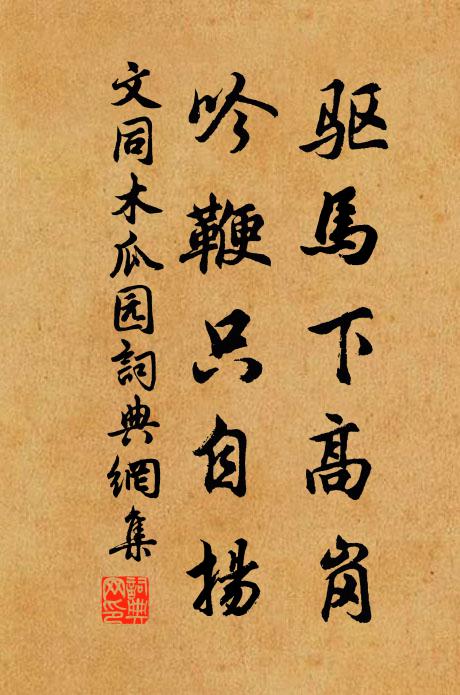 驱馬下高岗
吟鞭只自揚
文同木瓜园詞典網集
詞典網印